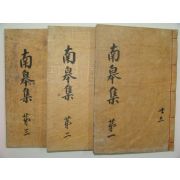 南皐集 第一
南皐集 第二
南皐集 第三